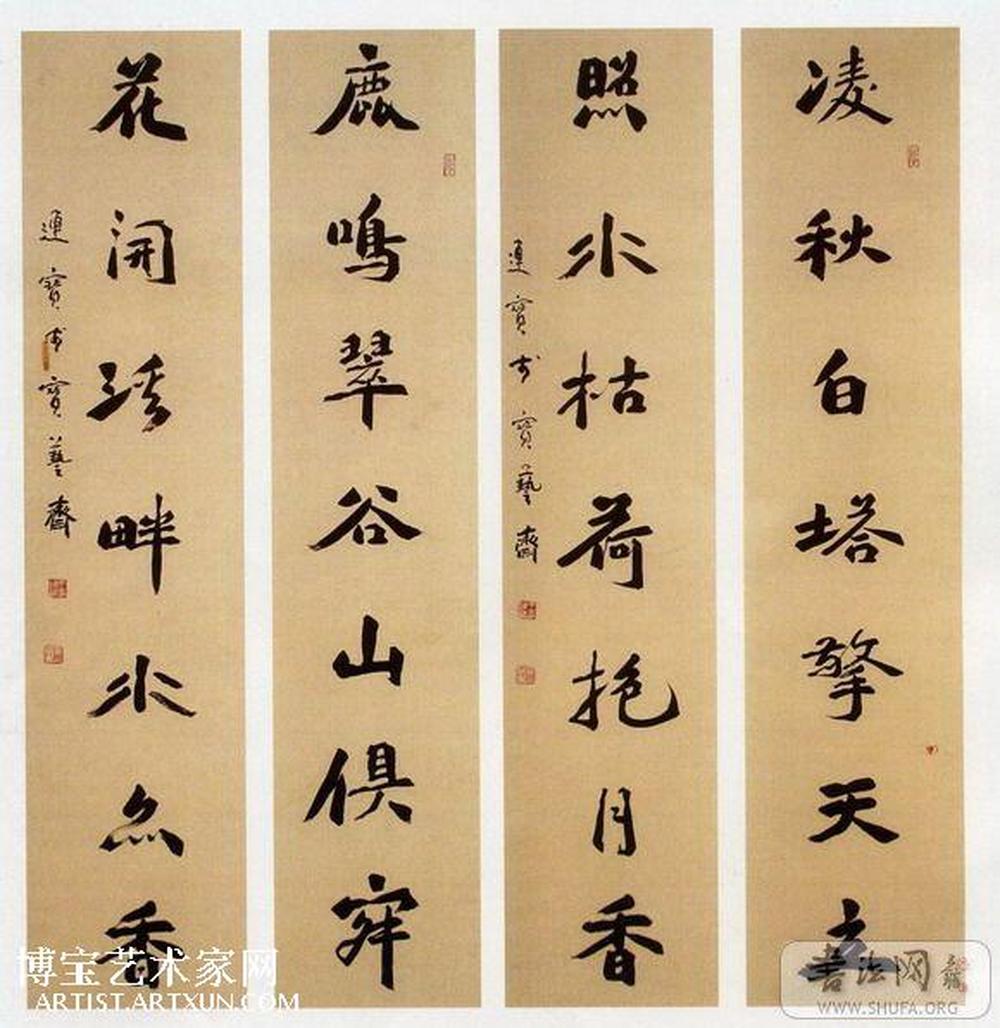 凌秋白塔擎天
照水枯荷抱月香
連寶於寶藝齋
鹿鳴翠谷山俱
花開溪畔水亦香
連寶 寶藝齋
博宝艺术家网
ARTIST.ARTXUN.COM
书法网
WWW.SHUFA.ORG